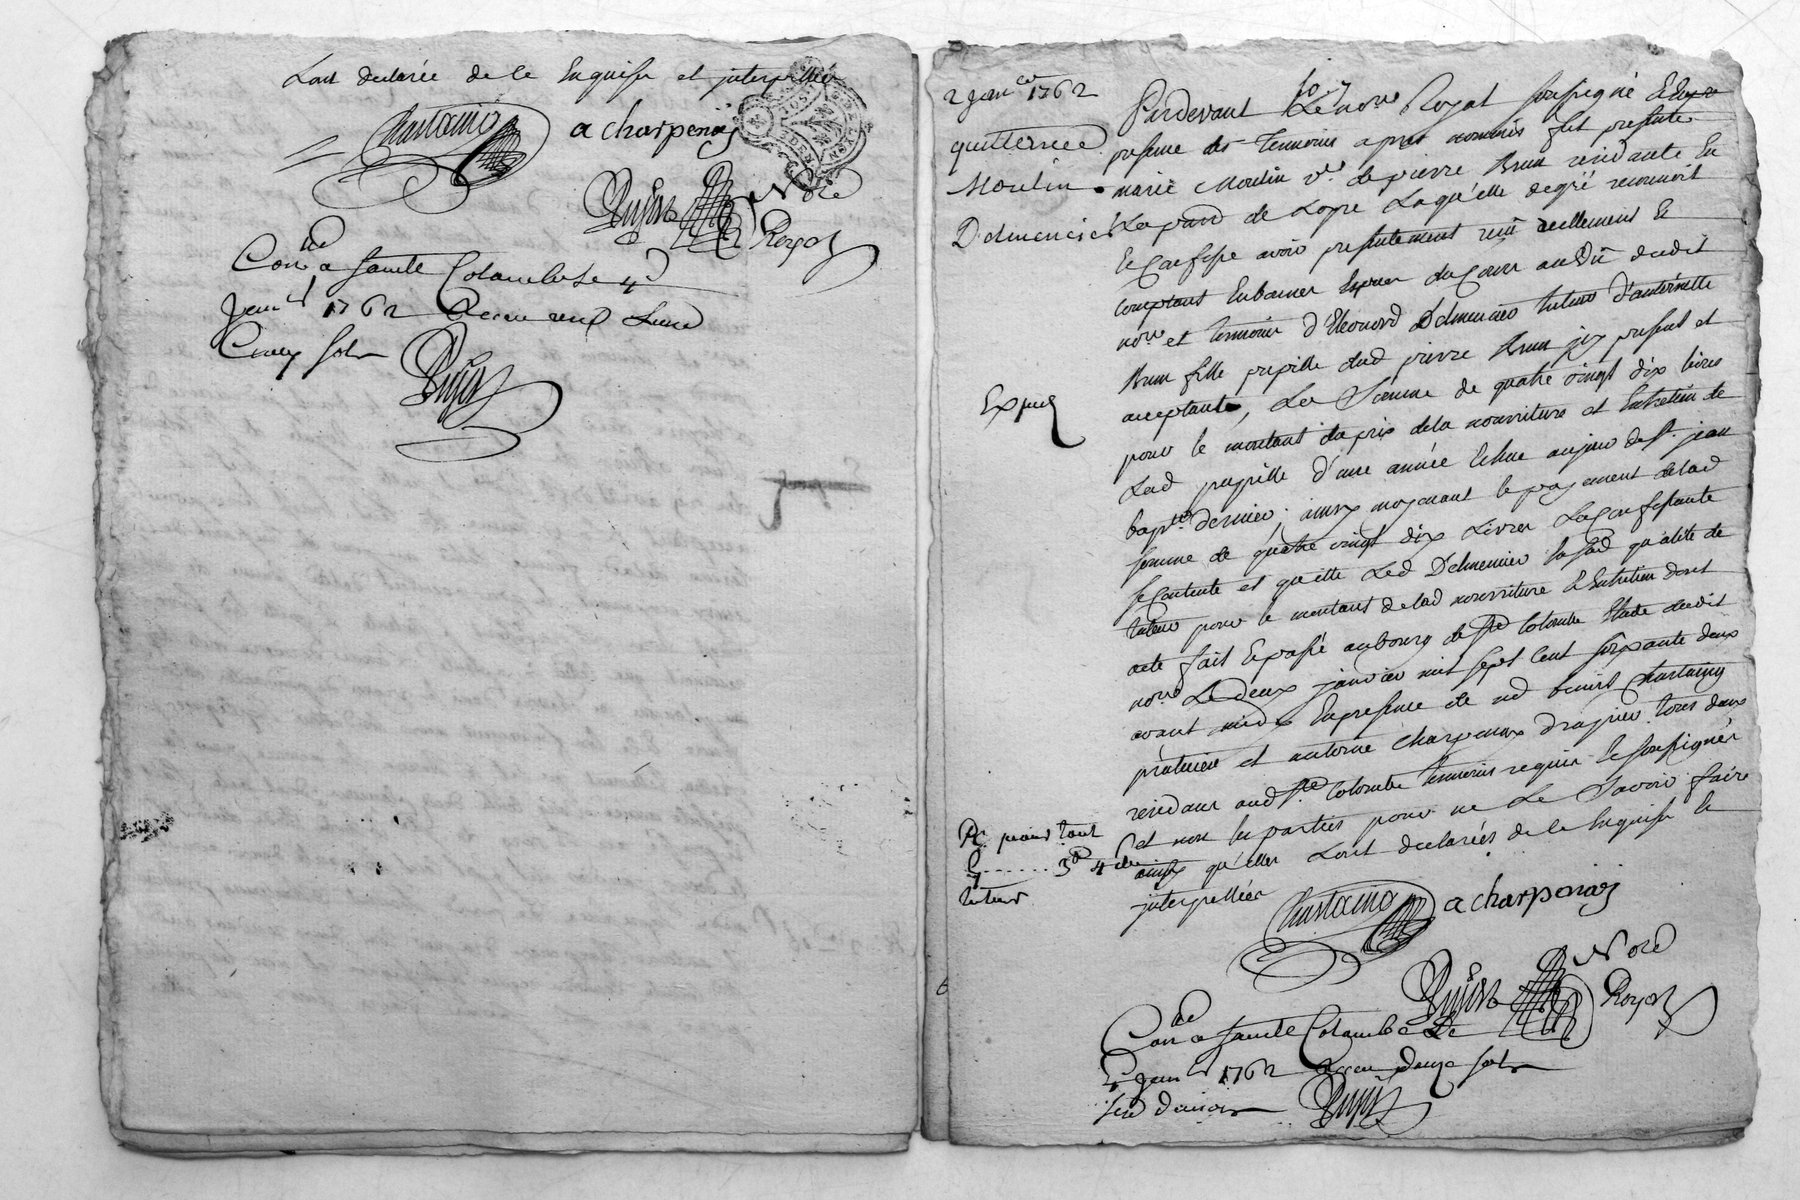 Lont declarée de ce Enquise et interpellée
Chartaino a charpenaÿ
Dujast Nore
Royal
Con.lé a sainte Colombe Le 4
Janv.er 1762 Receu une Livre
Cinq sols
Dujast
2 Janv.er 1762
quittence
Moulin
Delmenicier
Expiée
Pardevant Le no.re Royal soussigné Et En
presence des Temoins apres nommés fut presente
marie Moulin v.e de pierre Brun residante En
La par de Loyre Laqu'elle degré reconnoit
Et Confesse avoir presentement reçu reellement Et
comptant du Cour au Dit dudit
no.re et temoins d'Eleonord Delmenicier tuteur d'antoinette
Brun fille pupille dud pierre Brun jcy present et
acceptant, La Somme de quatre vingt dix livres
pour le montant du prix dela nourriture et Entretien de
Lad pupille d'une année Echue aujour de S.t jean
bap.te dernier; ainsy moyenant le payement delad
somme de quatre vingt dix Livres La Confessante
se Contente et quitte Led Delmenicier En sad qualité de
tuteur pour le montant delad nourriture Et Entretien dont
acte fait Et passé aubourg de S.te Colombe Etude dudit
no.re Le deux janvier mil sept Cent soixante deux
avant midy En presence de benoist Chartaino
praticien et antoine Charpenay drapier tous deux
residans aud S.te Colombe temoins requis Et soussignés
et non les parties pour ne Le Savoir faire
ainsy qu'elles Lont declarées de ce Enquise Et
interpellées
R. pour tout
3 4
tuteur
Chartaino a charpenaÿ
Dujast Nore
Royal
Con.lé a sainte Colombe Le
4 Janv.er 1762 Receu Douze sols
six deniers Dujast